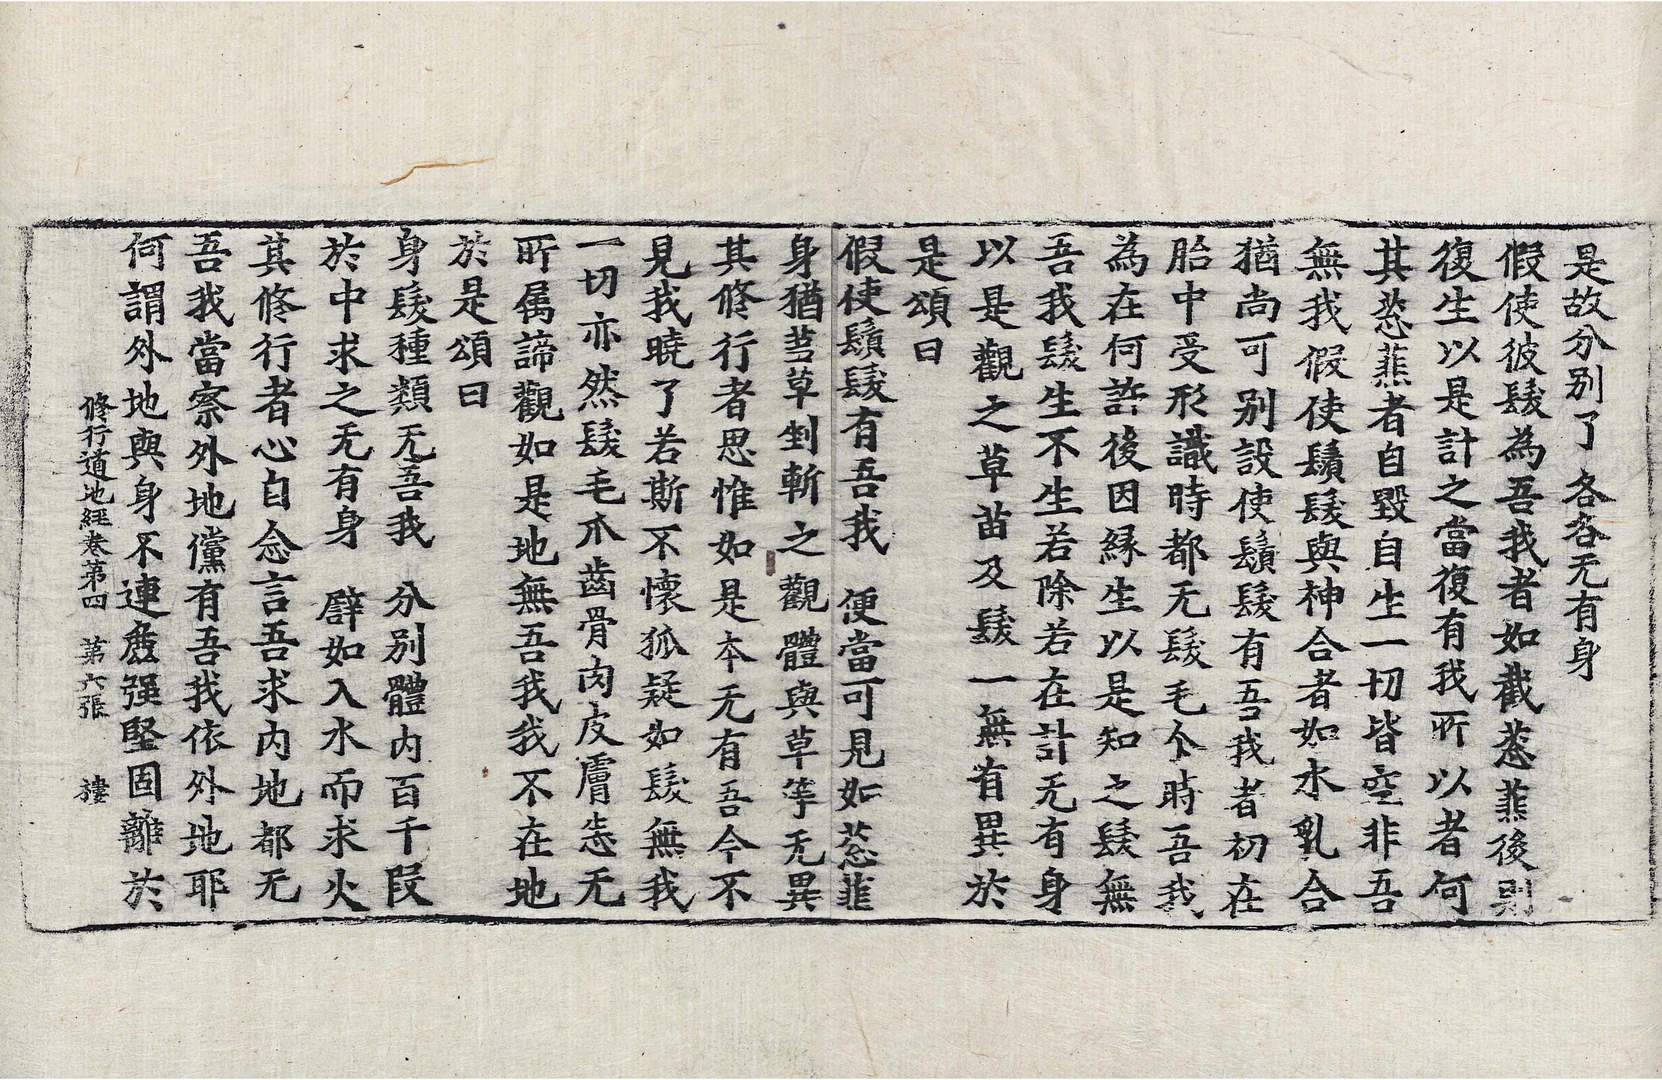 是故分別了　各各无有身
假使彼髮為吾我者如截葱韮後則
復生以是計之當復有我所以者何
其葱韮者自毀自生一切皆空非吾
無我假使鬚髮與神合者如水乳合
猶尚可別設使鬚髮有吾我者初在
胎中受形識時都无髮毛尒時吾我
為在何許後因緣生以是知之髮無
吾我髮生不生若除若在計无有身
以是觀之草苗及髮一無有異於
是頌曰
假使鬚髮有吾我　便當可見如葱韮
身猶芻草剉斬之　觀體與草等无異
其修行者思惟如是本无有吾今不
見我曉了若斯不懷狐疑如髮無我
一切亦然髮毛爪齒骨肉皮膚悉无
所属諦觀如是地無吾我我不在地
於是頌曰
身髮種類无吾我　分別體內百千段
於中求之无有身　譬如入水而求火
其修行者心自念言吾求內地都无
吾我當察外地儻有吾我依外地耶
何謂外地與身不連麁强堅固離於
修行道地經卷第四　第六張　樓